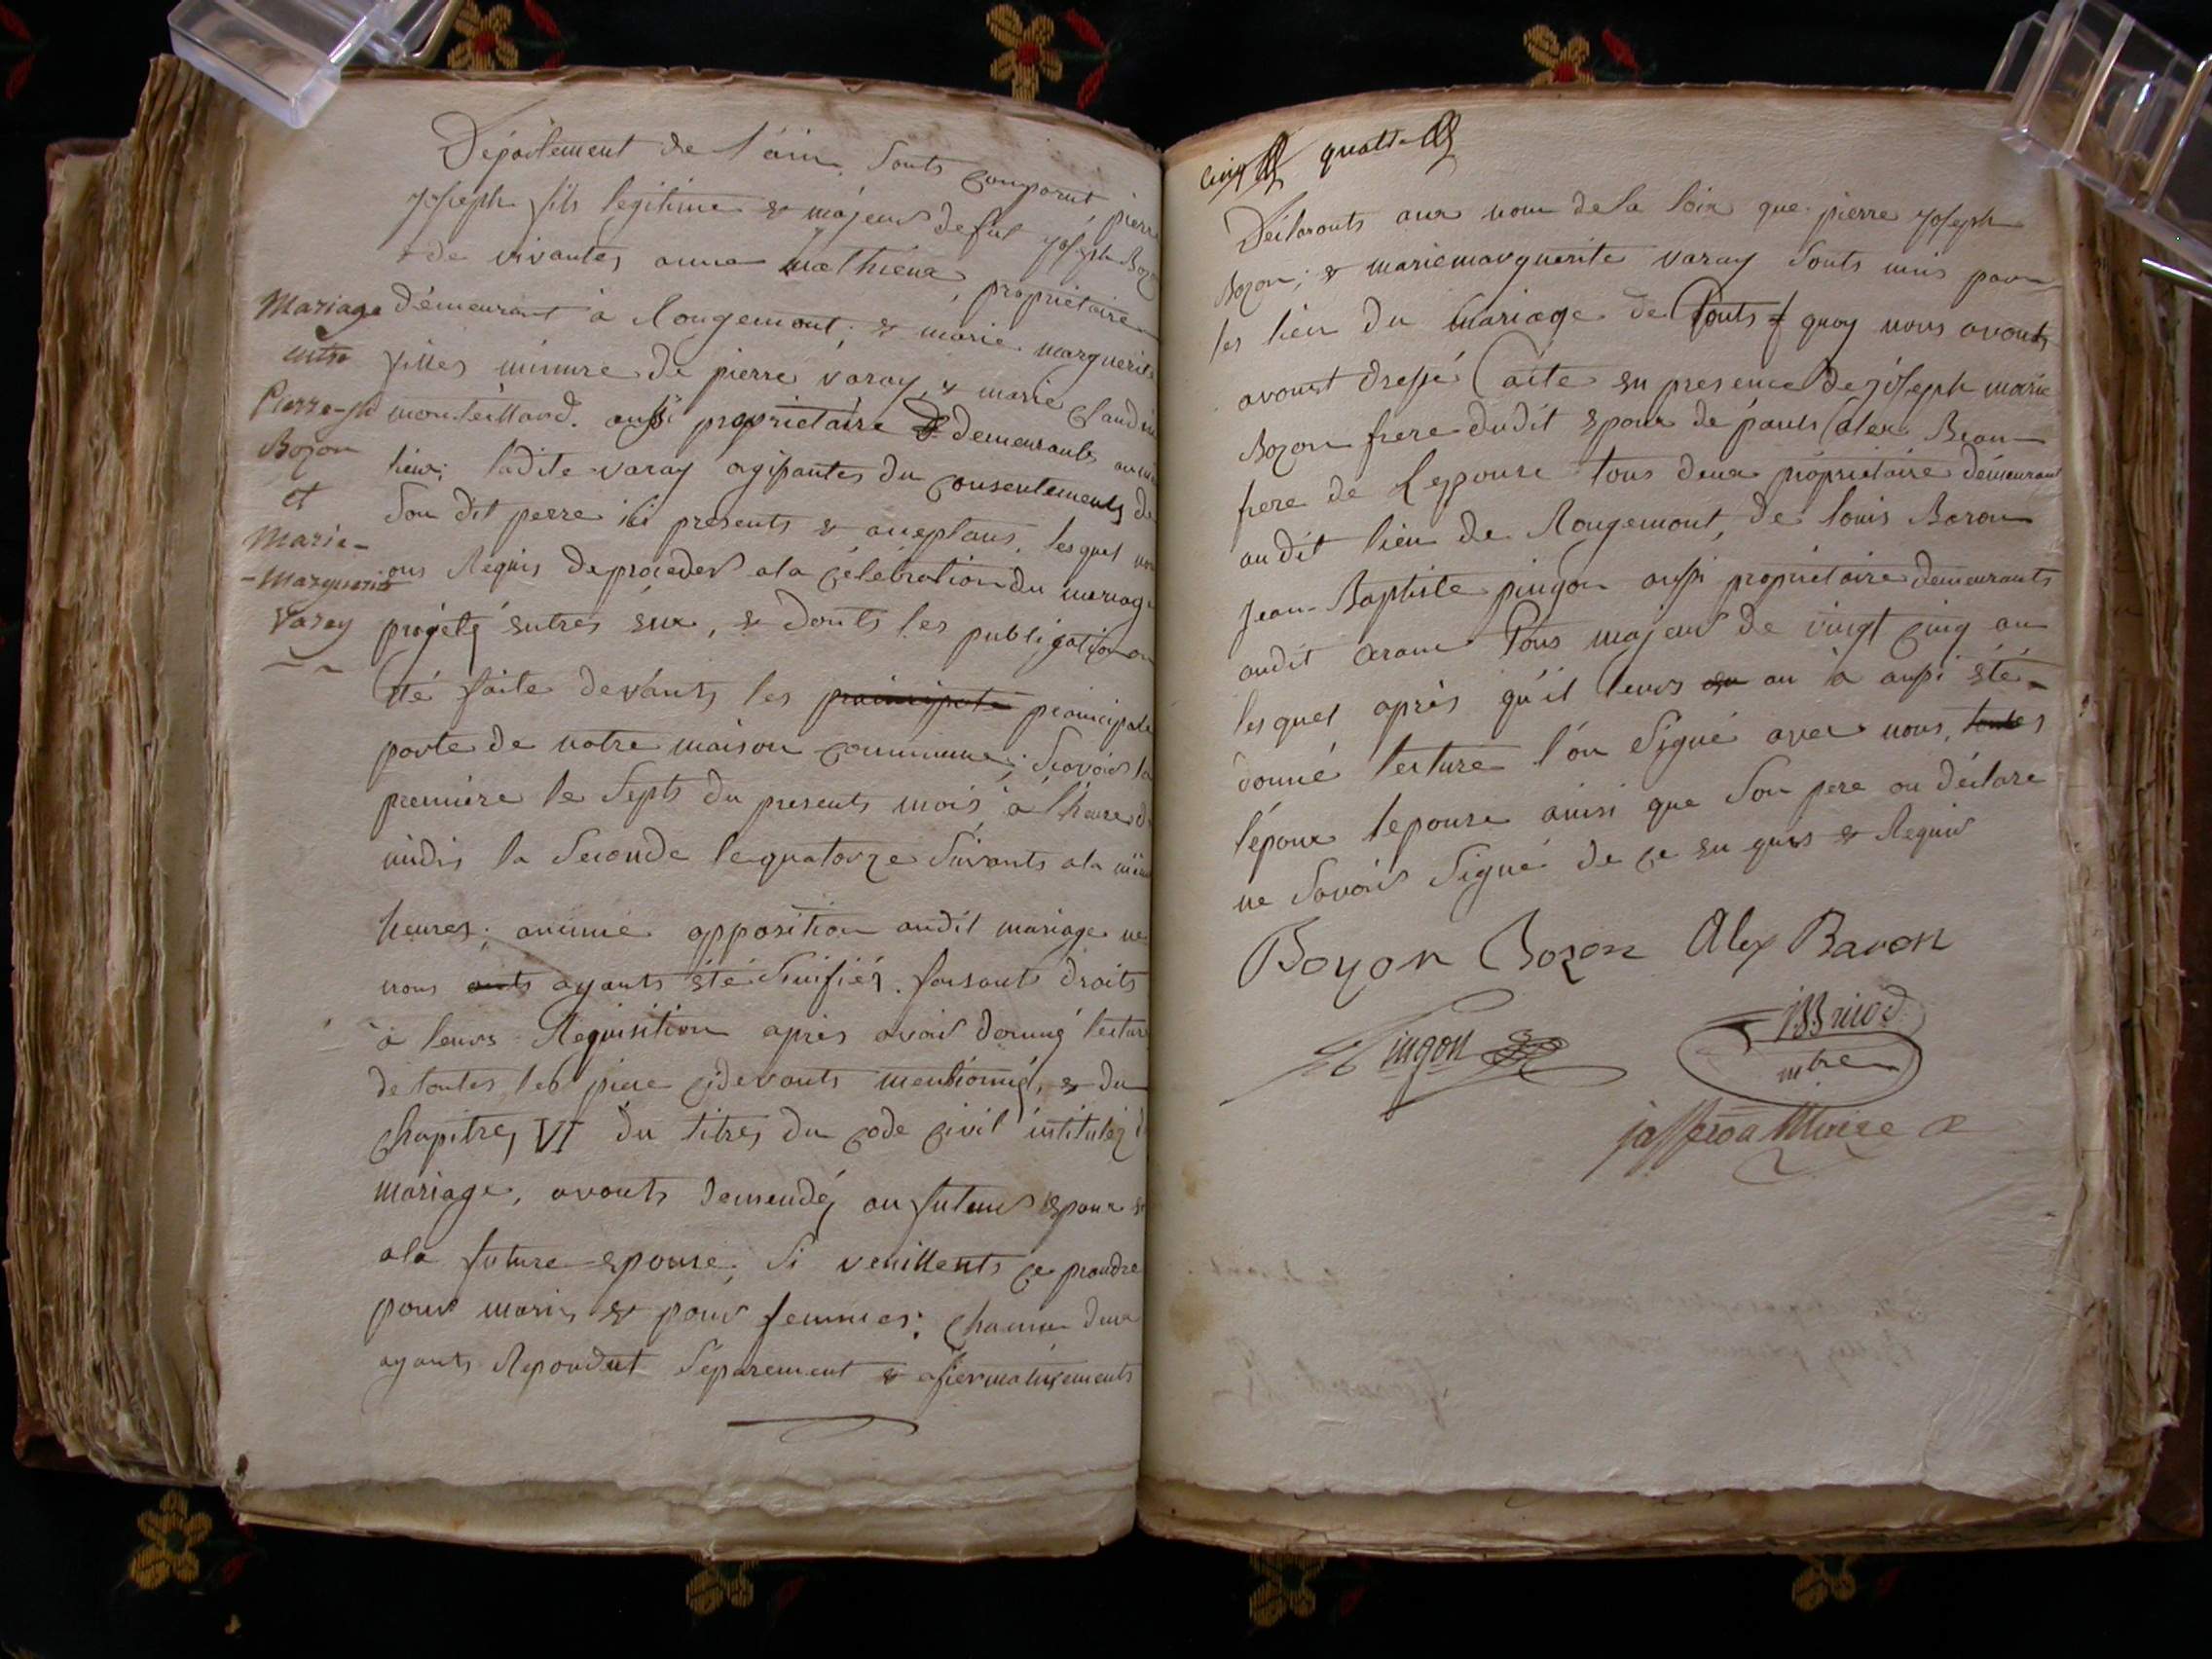 Département de l'ain. Sonts comparut, pierre
joseph fils legitime & majeur defut joseph Bozon
& de vivantes anne mathieux, proprietaire
Mariage
entre
Pierre-jh
Bozon
et
Marie-
-Marguerite
Varay
démeurant à Rougemont; & marie marguerite
filles mineure de pierre varay, & marie Claudine
monteillard. aussi proprietaire & demeurants au
lieux; ladite varay agissantes du consentements de
Son dit perre ici presents & acceptans, lesquel nous
ons Requis deproceder ala célébration du mariage
progeté entres eux, & donts les publication on
été faite devants les prainsipale praincipale
porte de notre maison commune; Scavoir la
premiere le Septs du presents mois, à l'heure de
midis la Seconde lequatorze Suivants ala même
heures; aucune opposition audit mariage ne
nous onts ayants été Sinifiés. faisant droits
à leurs Requisition apres avoir donné lecture
de toutes les piece cidevants mentionné, & du
chapitres VI du titres du code civil intitulez du
mariage, avonts demendés au futeur espoux &
ala future epouse, Si veuillents ce prendre
pour maris & pour femmes; chacun deux
ayants Repondut Separement & affermativements
cinq quatre
Déclaronts aux nom dela loix que pierre joseph
Bozon; & mariemarguerite varay Sonts unis par
les lien du mariage de touts quoy nous avonts
avonst dressé acte en presence de joseph marie
Bozon frere dudit epoux de pauls alex Beau-
frere de Lepouse tous deux proprietaire démeurant
audit lieu de Rougemont, de louis Baron
Jean-Baptiste pingon aussi proprietaire demeurants
audit aranc tous majeur de vingt cinq an
lesquel après qu'il leurs en an à aussi été
donné lecture l'on Signé avec nous, toutes
l'époux lepouse ainsi que Son pere on déclare
ne Savoir Signé de ce en quis & Requis
Bozon Bozon Alex Baron
Pingon
mbre
jasseron Maire